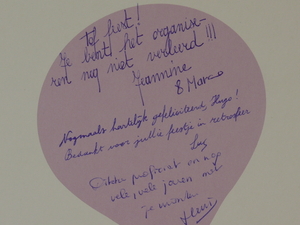 Tof feest!
Je bent het organise-
ren nog niet verleerd !!!
Jeannine
& Marc
Nogmaals hartelijk gefeliciteerd, Hugo!
Bedankt voor jullie feestje in retrosfeer
Luc
Dikke proficiat en nog
vele, vele jaren met
je
Henri